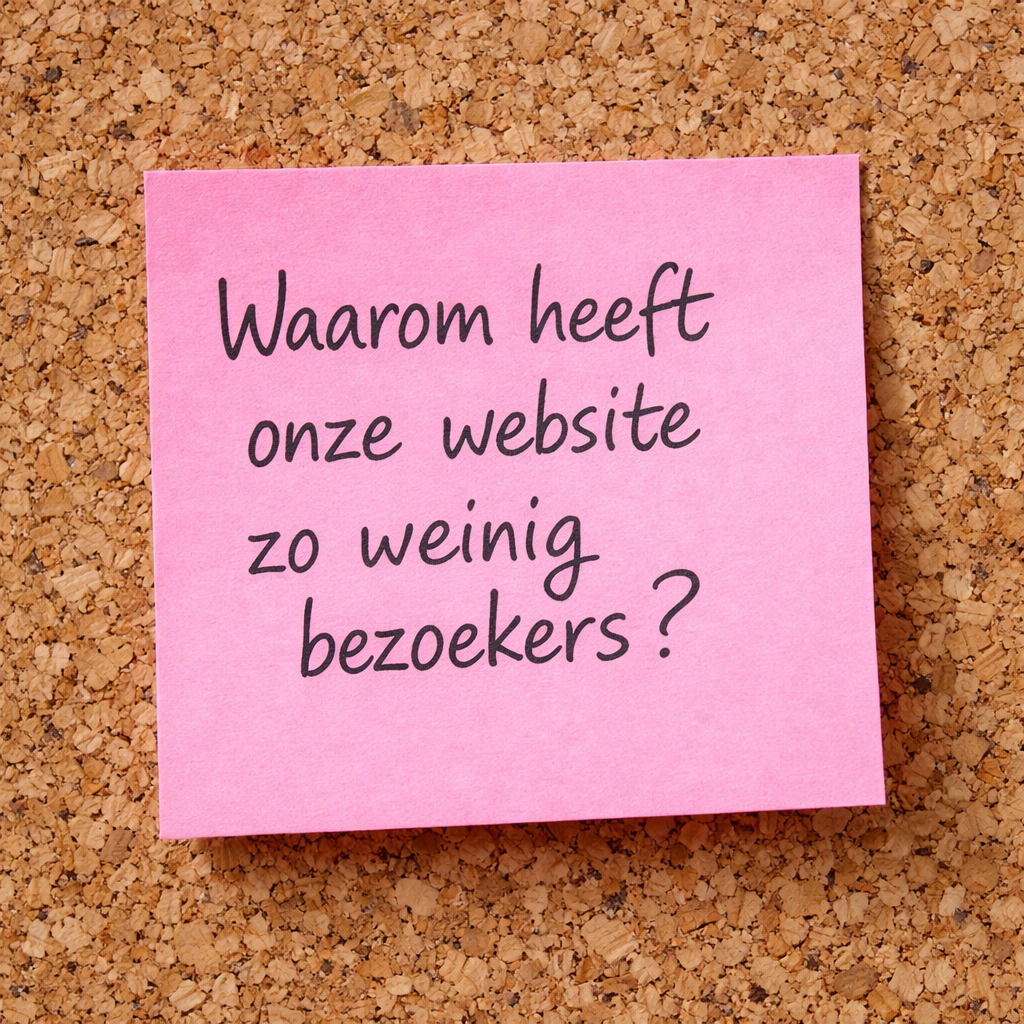 Waarom heeft
onze website
zo weinig
bezoekers?